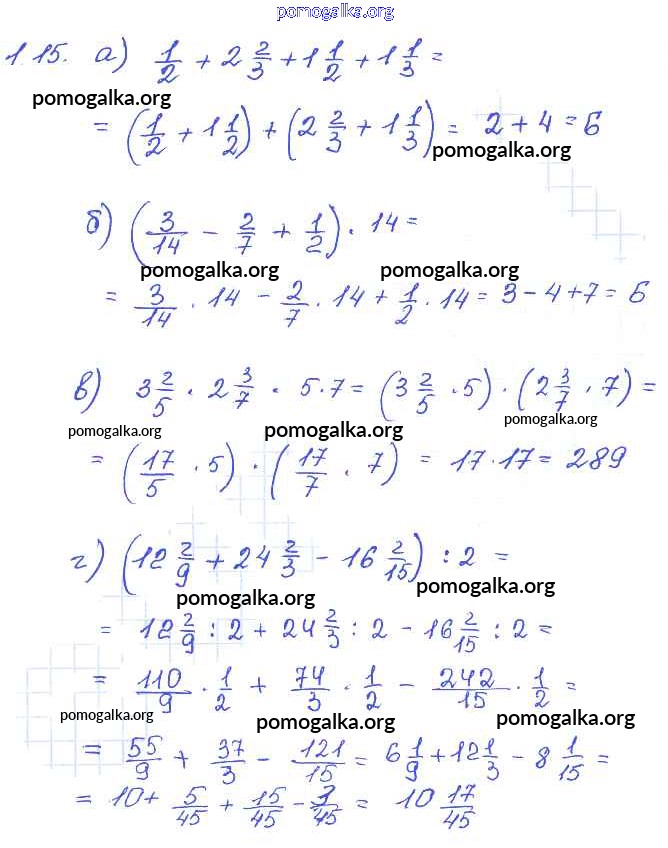 pomogalka.org
1.15. а) 1/2 + 2 2/3 + 1 1/2 + 1 1/3 =
pomogalka.org
= (1/2 + 1 1/2) + (2 2/3 + 1 1/3) = 2 + 4 = 6
pomogalka.org
б) (3/14 - 2/7 + 1/2) · 14 =
pomogalka.org pomogalka.org
= 3/14 · 14 - 2/7 · 14 + 1/2 · 14 = 3 - 4 + 7 = 6
в) 3 2/5 · 2 3/7 · 5 · 7 = (3 2/5 · 5) · (2 3/7 · 7) =
pomogalka.org pomogalka.org pomogalka.org
= (17/5 · 5) · (17/7 · 7) = 17 · 17 = 289
г) (12 2/9 + 24 2/3 - 16 2/15) : 2 =
pomogalka.org pomogalka.org
= 12 2/9 : 2 + 24 2/3 : 2 - 16 2/15 : 2 =
= 110/9 · 1/2 + 74/3 · 1/2 - 242/15 · 1/2 =
pomogalka.org pomogalka.org pomogalka.org
= 55/9 + 37/3 - 121/15 = 6 1/9 + 12 1/3 - 8 1/15 =
= 10 + 5/45 + 15/45 - 3/45 = 10 17/45